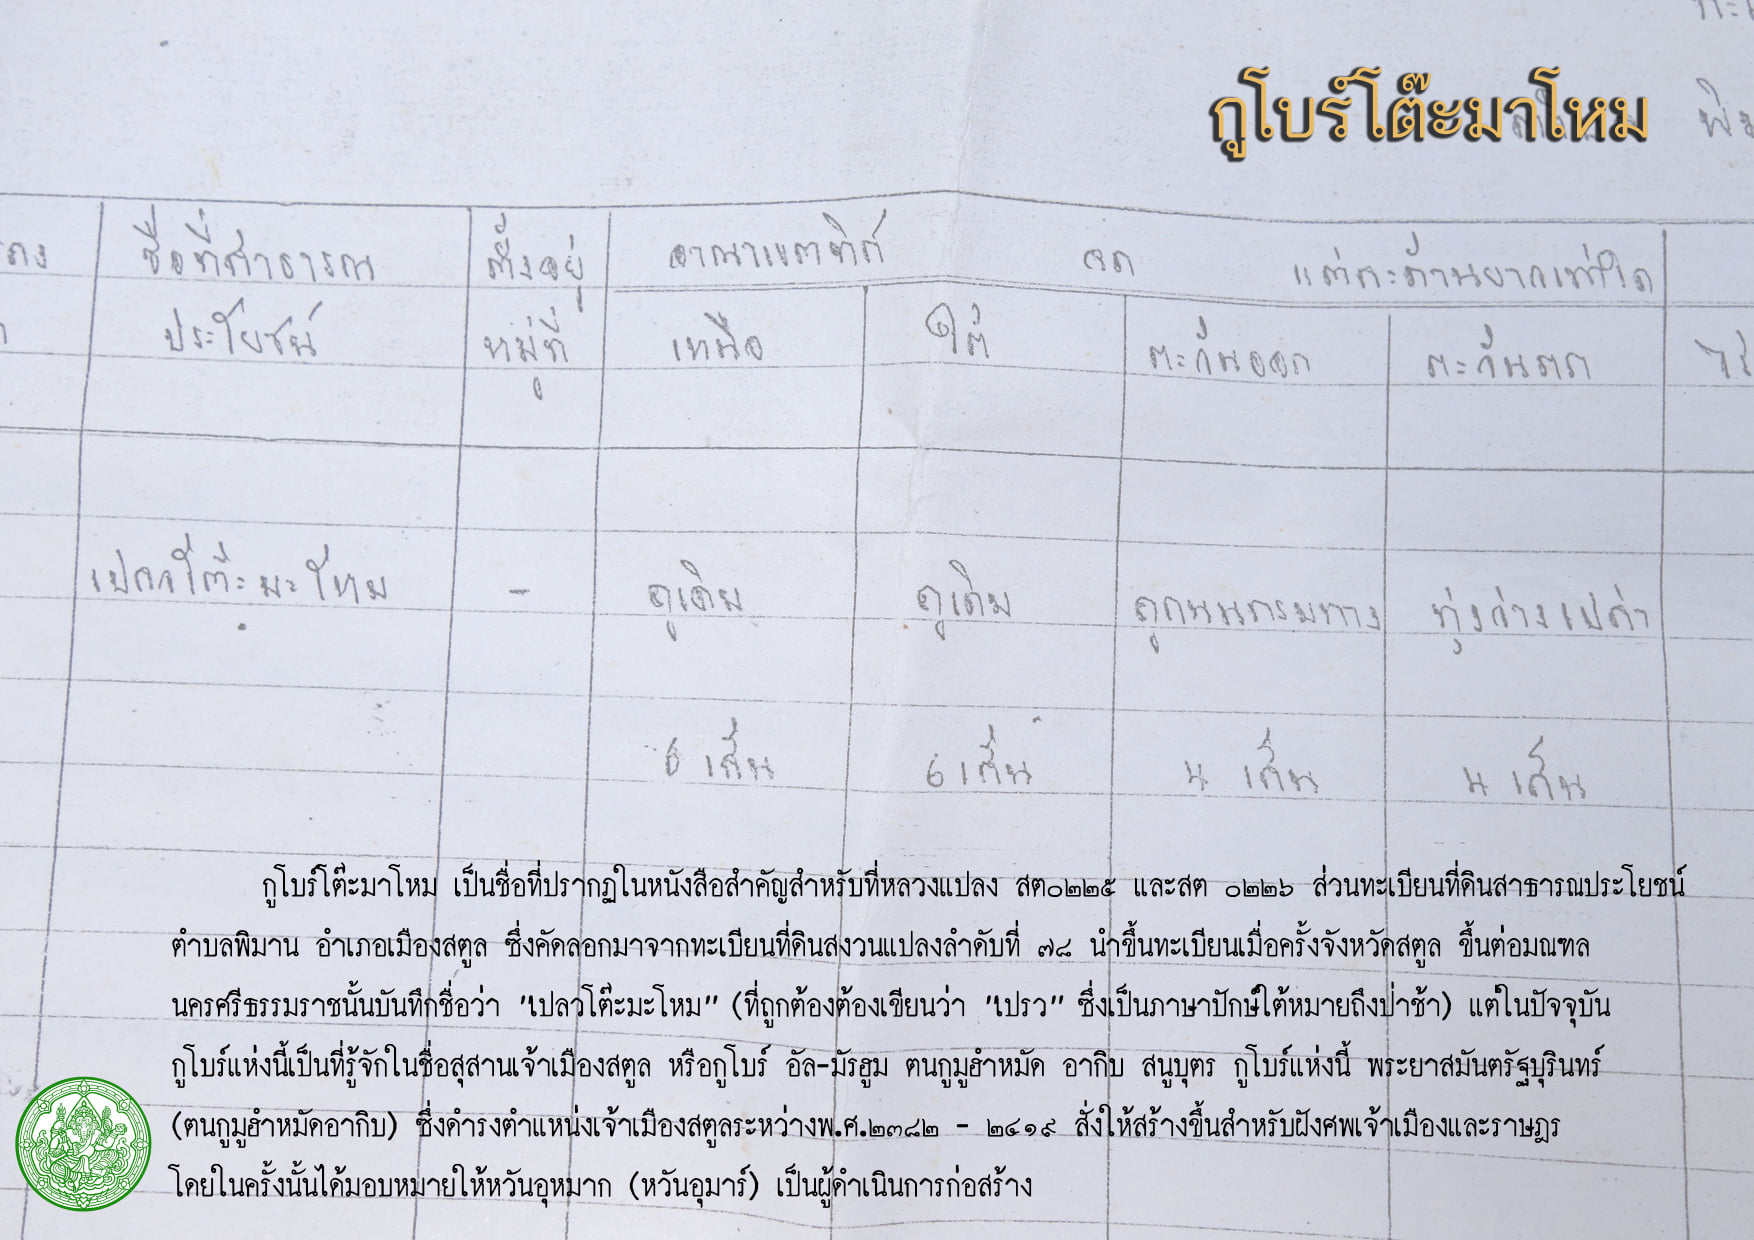 กูโบร์โต๊ะมาโหม
ชื่อที่สาธารณ ตั้งอยู่ อาณาเขตทิศ จด แต่ละด้านยาวเท่าใด
ประโยชน์ หมู่ที่ เหนือ ใต้ ตะวันออก ตะวันตก ไร่
เปลวโต๊ะมะโหม - ดูเดิม ดูเดิม ทุ่งว่างเปล่า
๖ เส้น ๖ เส้น ๔ เส้น ๔ เส้น
กูโบร์โต๊ะมาโหม เป็นชื่อที่ปรากฏในหนังสือสำคัญสำหรับที่หลวงแปลง สต๐๒๒๕ และสต ๐๒๒๖ ส่วนทะเบียนที่ดินสาธารณประโยชน์
ตำบลพิมาน อำเภอเมืองสตูล ซึ่งคัดลอกมาจากทะเบียนที่ดินสงวนแปลงลำดับที่ ๗๘ นำขึ้นทะเบียนเมื่อครั้งจังหวัดสตูล ขึ้นต่อมณฑล
นครศรีธรรมราชนั้นบันทึกชื่อว่า "เปลวโต๊ะมะโหม" (ที่ถูกต้องต้องเขียนว่า "เปรว" ซึ่งเป็นภาษาปักษ์ใต้หมายถึงป่าช้า) แต่ในปัจจุบัน
กูโบร์แห่งนี้เป็นที่รู้จักในชื่อสุสานเจ้าเมืองสตูล หรือกูโบร์ อัล-มัรฮูม ตนกูมูฮำหมัด อากิบ สนูบุตร กูโบร์แห่งนี้ พระยาสมันตรัฐบุรินทร์
(ตนกูมูฮำหมัดอากิบ) ซึ่งดำรงตำแหน่งเจ้าเมืองสตูลระหว่างพ.ศ.๒๓๘๒ - ๒๔๑๙ สั่งให้สร้างขึ้นสำหรับฝังศพเจ้าเมืองและราษฎร
โดยในครั้งนั้นได้มอบหมายให้หวันอุหมาก (หวันอุมาร์) เป็นผู้ดำเนินการก่อสร้าง